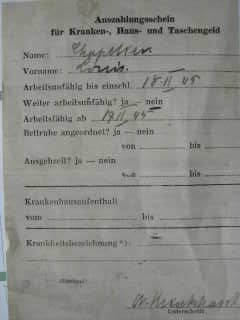 Auszahlungsschein
für Kranken-, Haus- und Taschengeld
Name:
Vorname: Louis
Arbeitsunfähig bis einschl 18 II 45
Weiter arbeitsunfähig? ja — nein
Arbeitsfähig ab 19 II. 45
Bettruhe angeordnet? ja — nein
von bis
Ausgehzeit? ja — nein
von bis
Krankenhausaufenthalt
vom bis
Krankheitsbezeichnung *):
(Stempel)
(Unterschrift)